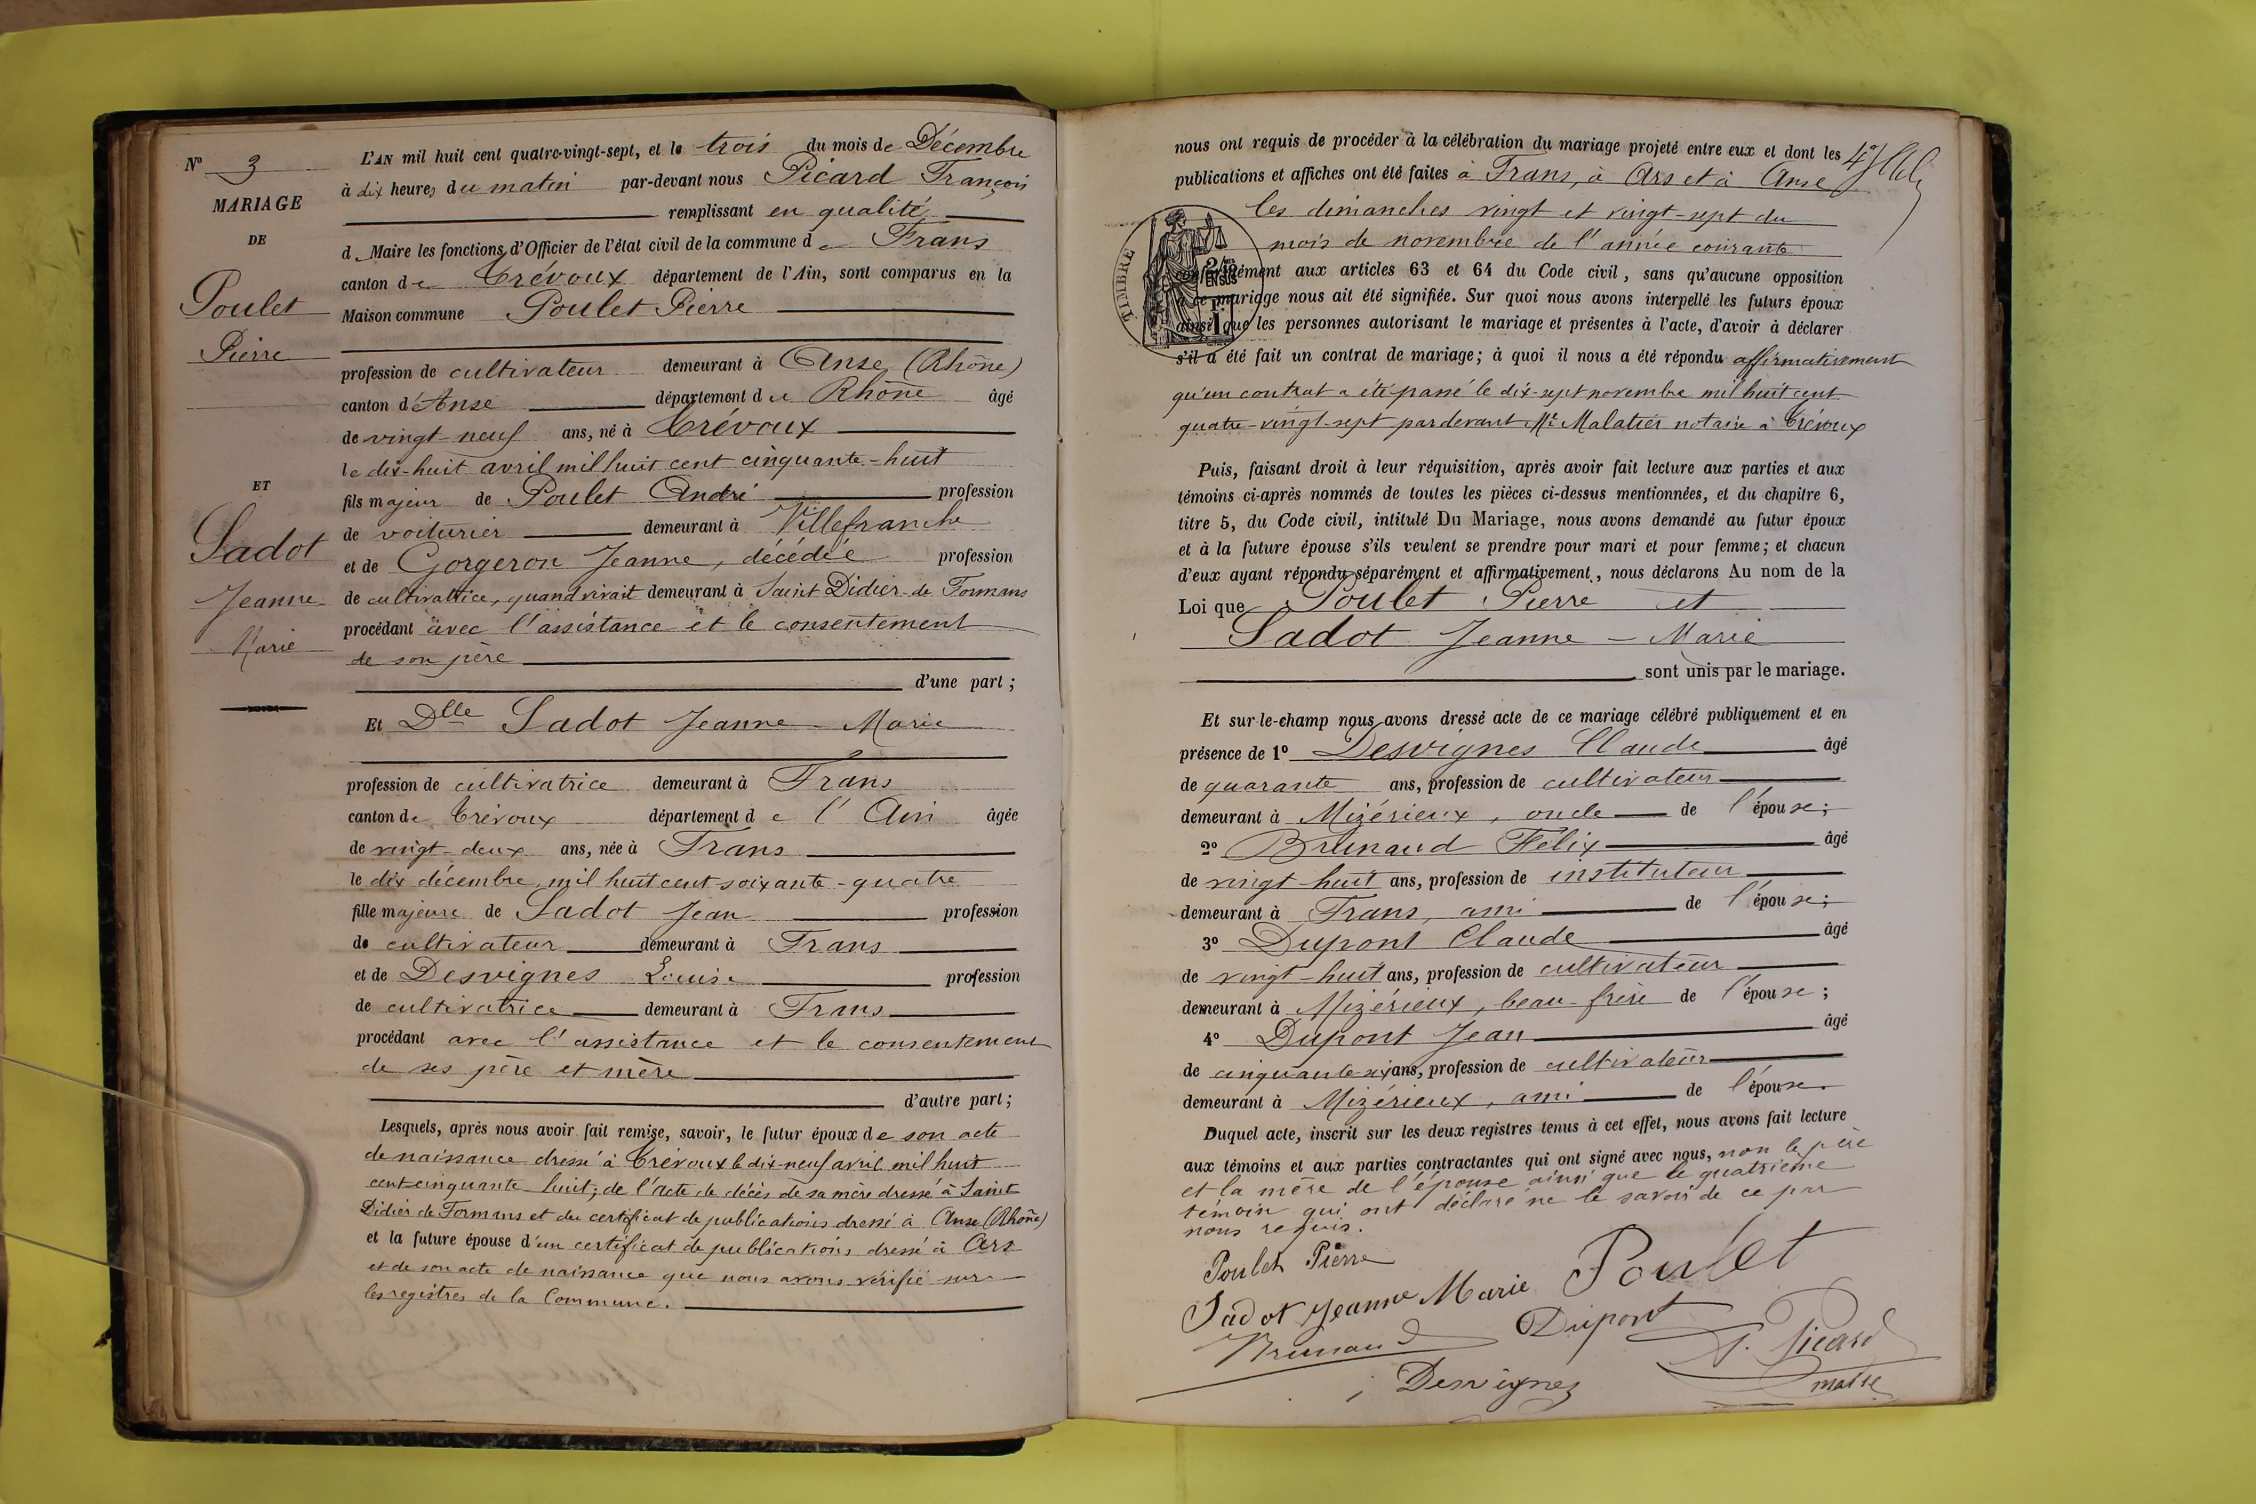 N° 3
MARIAGE
DE
Poulet
Pierre
ET
Sadot
Jeanne
Marie
L'AN mil huit cent quatre-vingt-sept, et le trois du mois de Décembre
à dix heures du matin par-devant nous Picard François
remplissant en qualité
de Maire les fonctions d'Officier de l'état civil de la commune de Frans
canton de Trévoux département de l'Ain, sont comparus en la
Maison commune Poulet Pierre
profession de cultivateur demeurant à Anse (Rhône)
canton d'Anse département de Rhône âgé
de vingt-neuf ans, né à Trévoux
le dix-huit avril mil huit cent cinquante-huit
fils majeur de Poulet André profession
de voiturier demeurant à Villefranche
et de Gorgeron Jeanne, décédée profession
de cultivatrice, quand vivait demeurant à Saint Didier de Formans
procédant avec l'assistance et le consentement
de son père
d'une part ;
Et Dlle Sadot Jeanne-Marie
profession de cultivatrice demeurant à Frans
canton de Trévoux département de l'Ain âgée
de vingt-deux ans, née à Frans
le dix décembre mil huit cent soixante-quatre
fille majeure de Sadot Jean profession
de cultivateur demeurant à Frans
et de Desvignes Louise profession
de cultivatrice demeurant à Frans
procédant avec l'assistance et le consentement
de ses père et mère
d'autre part ;
Lesquels, après nous avoir fait remise, savoir, le futur époux de son acte
de naissance dressé à Trévoux le dix-neuf avril mil huit
cent cinquante huit; de l'acte de décès de sa mère dressé à Saint
Didier de Formans et du certificat de publications dressé à Anse (Rhône)
et la future épouse d'un certificat de publications dressé à Ars
et de son acte de naissance que nous avons vérifié sur
les registres de la Commune.
nous ont requis de procéder à la célébration du mariage projeté entre eux et dont les
publications et affiches ont été faites à Frans, à Ars et à Anse
les dimanches vingt et vingt-sept du
mois de novembre de l'année courante
TIMBRE
conformément aux articles 63 et 64 du Code civil, sans qu'aucune opposition
à ce mariage nous ait été signifiée. Sur quoi nous avons interpellé les futurs époux
ainsi que les personnes autorisant le mariage et présentes à l'acte, d'avoir à déclarer
s'il a été fait un contrat de mariage; à quoi il nous a été répondu affirmativement
qu'un contrat a été passé le dix-sept novembre mil huit cent
quatre-vingt-sept par devant Me Malatier notaire à Trévoux
Puis, faisant droit à leur réquisition, après avoir fait lecture aux parties et aux
témoins ci-après nommés de toutes les pièces ci-dessus mentionnées, et du chapitre 6,
titre 5, du Code civil, intitulé Du Mariage, nous avons demandé au futur époux
et à la future épouse s'ils veulent se prendre pour mari et pour femme; et chacun
d'eux ayant répondu séparément et affirmativement, nous déclarons Au nom de la
Loi que Poulet Pierre et
Sadot Jeanne-Marie
sont unis par le mariage.
Et sur-le-champ nous avons dressé acte de ce mariage célébré publiquement et en
présence de 1° Desvignes Claude âgé
de quarante ans, profession de cultivateur
demeurant à Mizérieux, oncle de l'épouse;
2° Brunaud Félix âgé
de vingt huit ans, profession de instituteur
demeurant à Frans, ami de l'épouse;
3° Dupont Claude âgé
de vingt-huit ans, profession de cultivateur
demeurant à Mizérieux, beau-frère de l'épouse;
4° Dupont Jean âgé
de cinquante six ans, profession de cultivateur
demeurant à Mizérieux, ami de l'épouse.
Duquel acte, inscrit sur les deux registres tenus à cet effet, nous avons fait lecture
aux témoins et aux parties contractantes qui ont signé avec nous, non le père
et la mère de l'épouse ainsi que le quatrième
témoin qui ont déclaré ne le savoir de ce par
nous requis.
Poulet Pierre
Poulet
Sadot Jeanne Marie
Brunaud
Dupont
F. Picard
maire
Desvignes